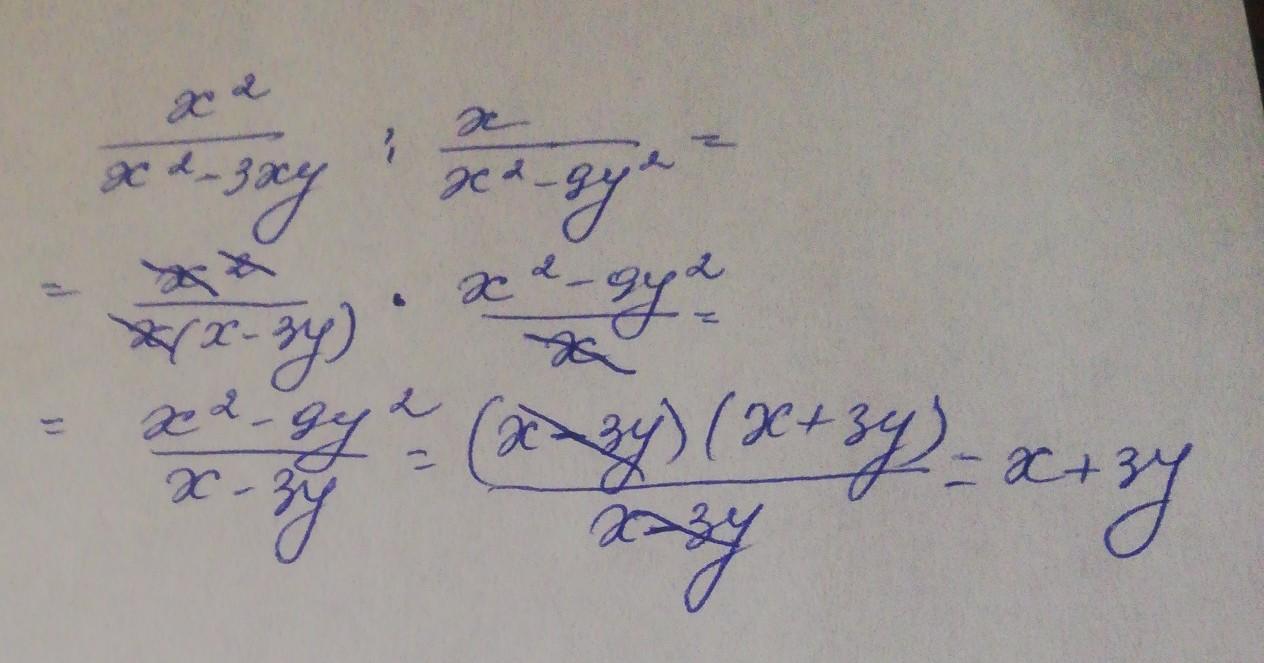 x²/(x²-3xy) : x/(x²-9y²) =
= x²/(x(x-3y)) · (x²-9y²)/x =
= (x²-9y²)/(x-3y) = ((x-3y)(x+3y))/(x-3y) = x+3y